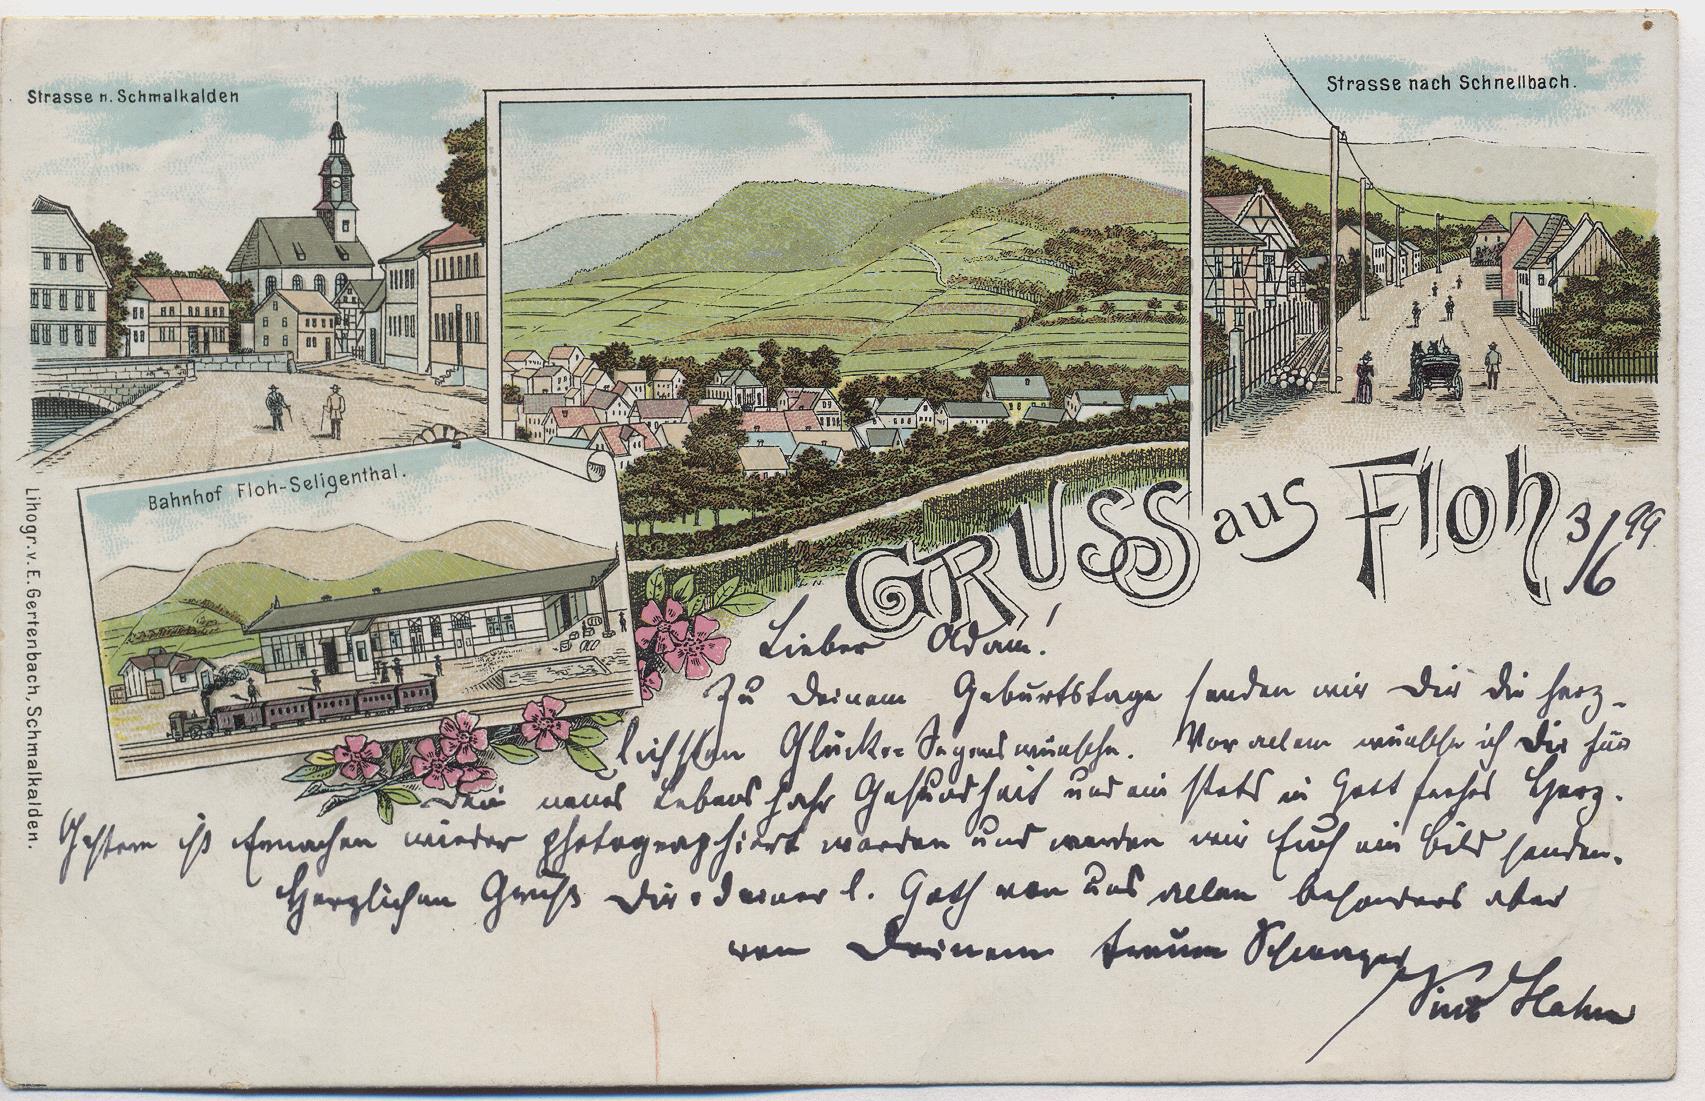 Strasse n. Schmalkalden
Strasse nach Schnellbach.
Bahnhof Floh-Seligenthal.
GRUSS aus Floh
3/6 99
Lihogr. v. E. Gertenbach, Schmalkalden.
Lieber Adam!
Zu Deinem Geburtstage senden wir Dir die herz-
lichsten Glücks= Segenswünsche. Vor allem wünsche ich Dir für
Dein neues Lebensjahr Gesundheit und ein stets in Gott frohes Herz.
Gestern ist wieder photographiert worden und werden wir Euch ein Bild senden.
Herzlichen Gruß Dir u. Deiner l. von uns allen besonders aber
von Deinem treuen Schwager
Hahn